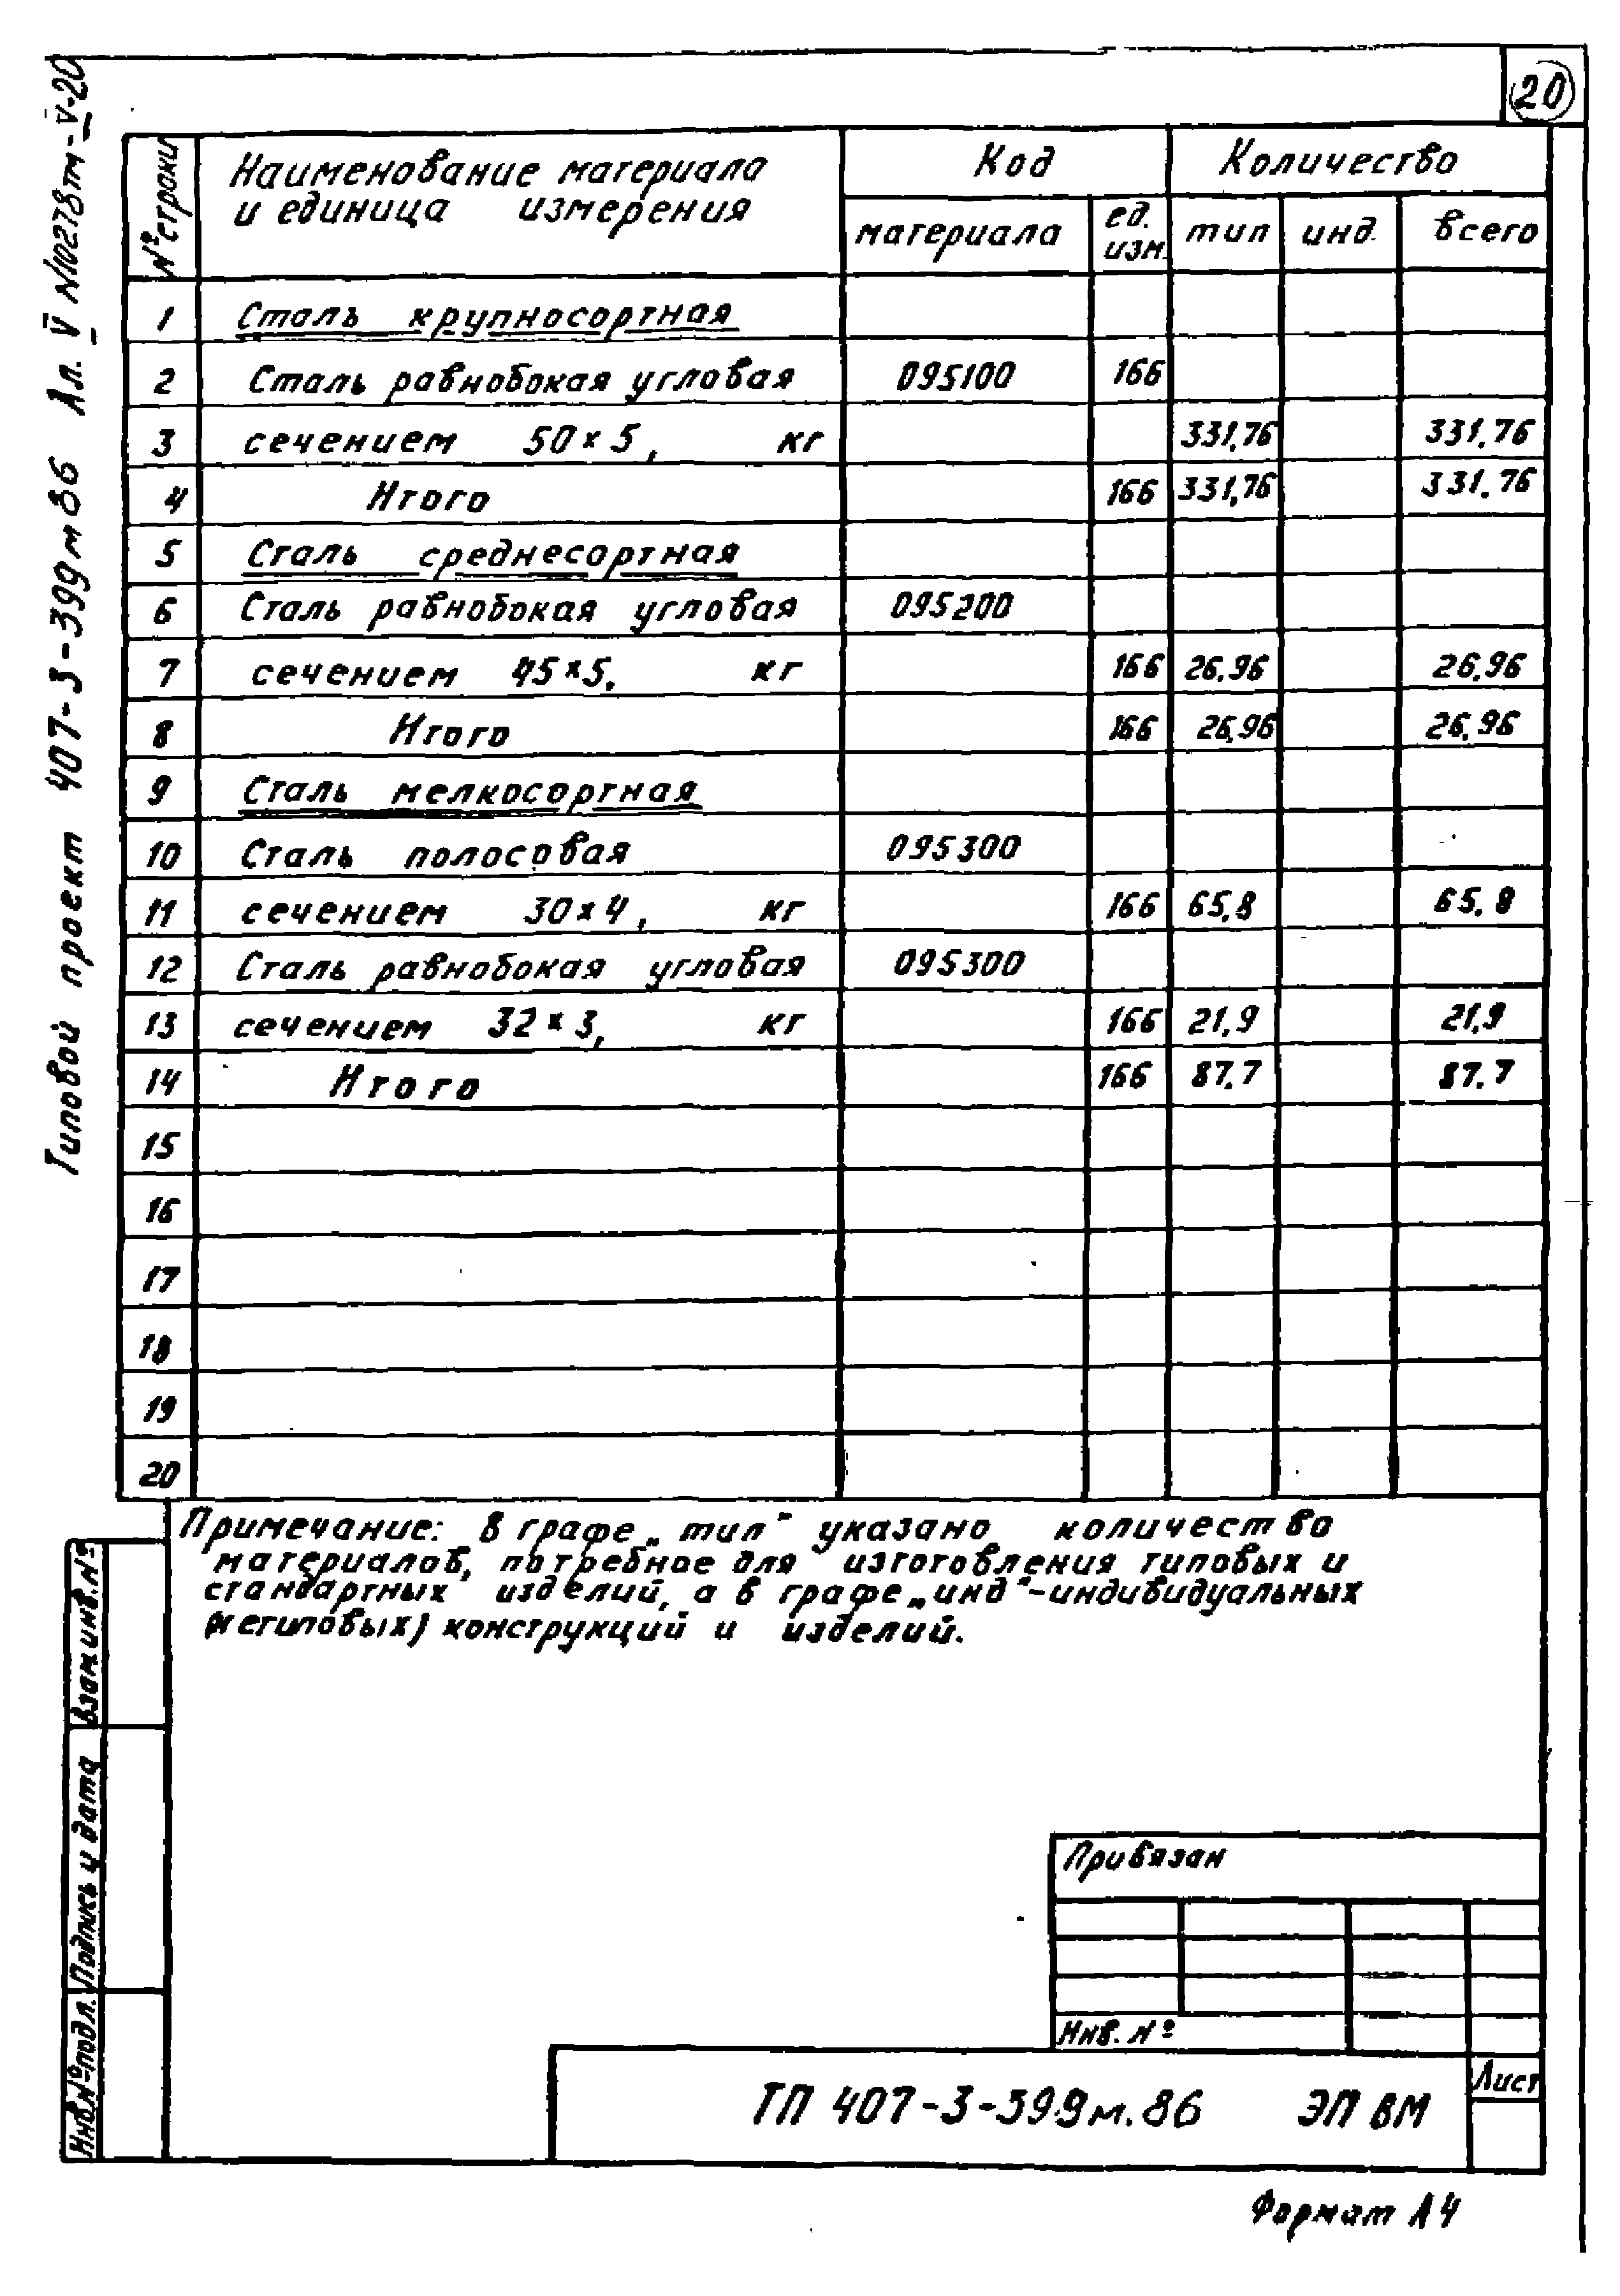 20
Типовой проект 407-3-399м86 Ал. V N10278тм-V-20
№ строки
Наименование материала
и единица измерения
Код
Количество
материала
ед. изм.
тип
инд.
всего
1 Сталь крупносортная
2 Сталь равнобокая угловая 095100 166
3 сечением 50×5, кг 331,76 331,76
4 Итого 166 331,76 331,76
5 Сталь среднесортная
6 Сталь равнобокая угловая 095200
7 сечением 45×5, кг 166 26,96 26,96
8 Итого 166 26,96 26,96
9 Сталь мелкосортная
10 Сталь полосовая 095300
11 сечением 30×4, кг 166 65,8 65,8
12 Сталь равнобокая угловая 095300
13 сечением 32×3, кг 166 21,9 21,9
14 Итого 166 87,7 87.7
15
16
17
18
19
20
Примечание: В графе „тип" указано количество
материалов, потребное для изготовления типовых и
стандартных изделий, а в графе „инд"-индивидуальных
(нетиповых) конструкций и изделий.
Взам инв.№
Подпись и дата
Инв.№ подл.
Привязан
Инв. №
ТП 407-3-399м.86 ЭП ВМ
Лист
Формат А4